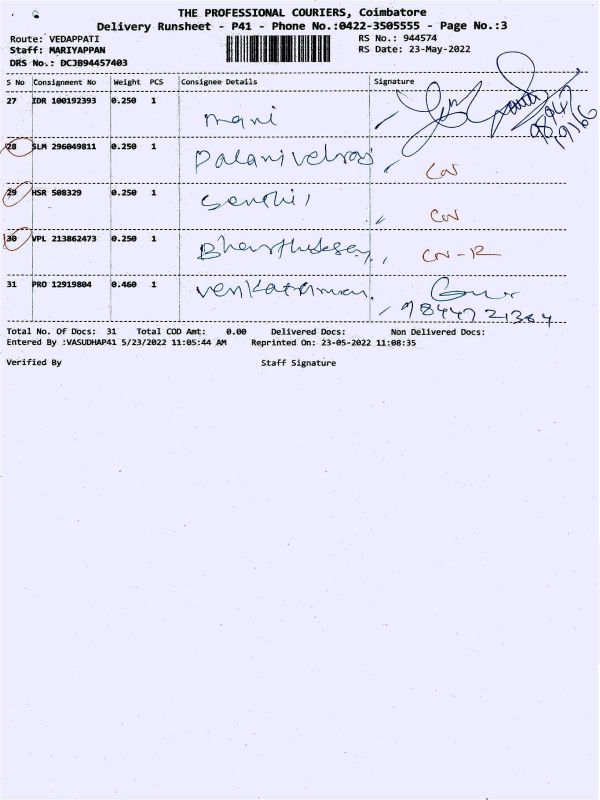 THE PROFESSIONAL COURIERS, Coimbatore
Delivery Runsheet - P41 - Phone No.:0422-3505555 - Page No.:3
Route: VEDAPPATI RS No.: 944574
Staff: MARIYAPPAN RS Date: 23-May-2022
DRS No.: DCJB94457403
S No Consignment No Weight PCS Consignee Details Signature
27 IDR 100192393 0.250 1 mani
28 SLM 296049811 0.250 1
29 HSR 508329 0.250 1
30 VPL 213862473 0.250 1
31 PRO 12919804 0.460 1
Total No. Of Docs: 31 Total COD Amt: 0.00 Delivered Docs: Non Delivered Docs:
Entered By :VASUDHAP41 5/23/2022 11:05:44 AM Reprinted On: 23-05-2022 11:08:35
Verified By Staff Signature